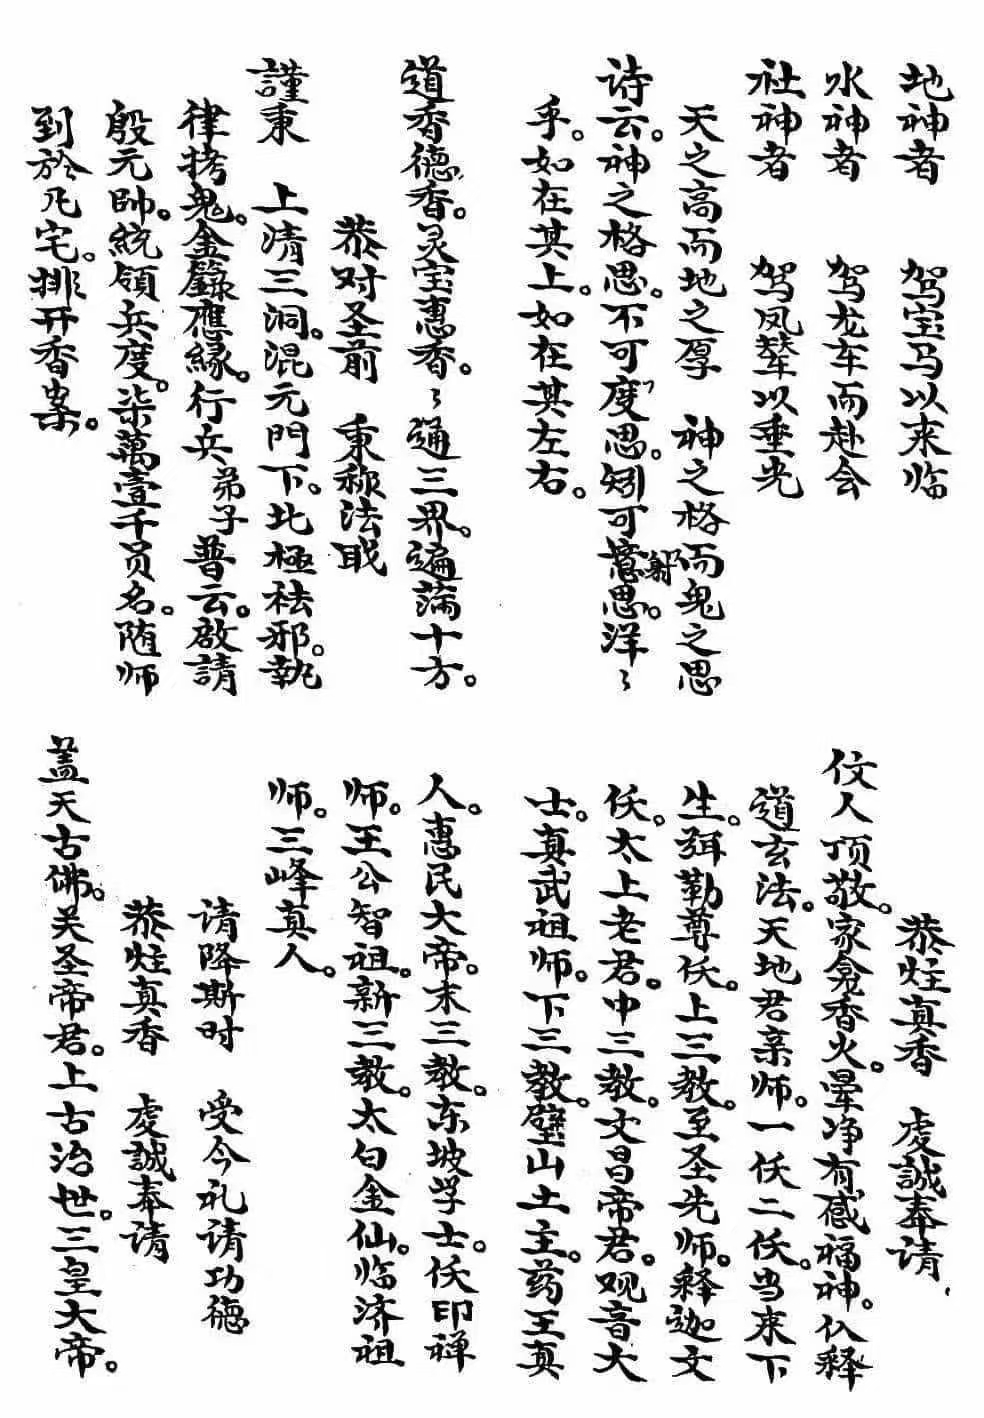 地神者　驾宝马以来临
水神者　驾龙车而赴会
社神者　驾凤辇以垂光
天之高而地之厚　神之格而鬼之思
诗云。神之格思。不可度思。矧可意思。洋〻
射
乎。如在其上。如在其左右。
道香德香。灵宝惠香。〻通三界。遍满十方。
恭对圣前　秉称法职
謹秉　上清三洞。混元門下。北極祛邪。執
律拷鬼。金籙應緣。行兵弟子普云。啟請
殷元帥。統領兵度。柒萬壹千员名。随师
到於凡宅。排开香案。
恭炷真香　虔誠奉请
仗人顶敬。家龛香火。晕净有感福神。仏释
道玄法。天地君亲师。一仸二仸。当来下
生。弥勒尊仸。上三教。至圣先师。释迦文
仸。太上老君。中三教。文昌帝君。观音大
士。真武祖师。下三教。壁山土主。药王真
人。惠民大帝。末三教。东坡学士。仸印禅
师。王公智祖。新三教。太白金仙。临济祖
师。三峰真人。
请降斯时　受今礼请功德
恭炷真香　虔誠奉请
盖天古佛。关圣帝君。上古治世。三皇大帝。